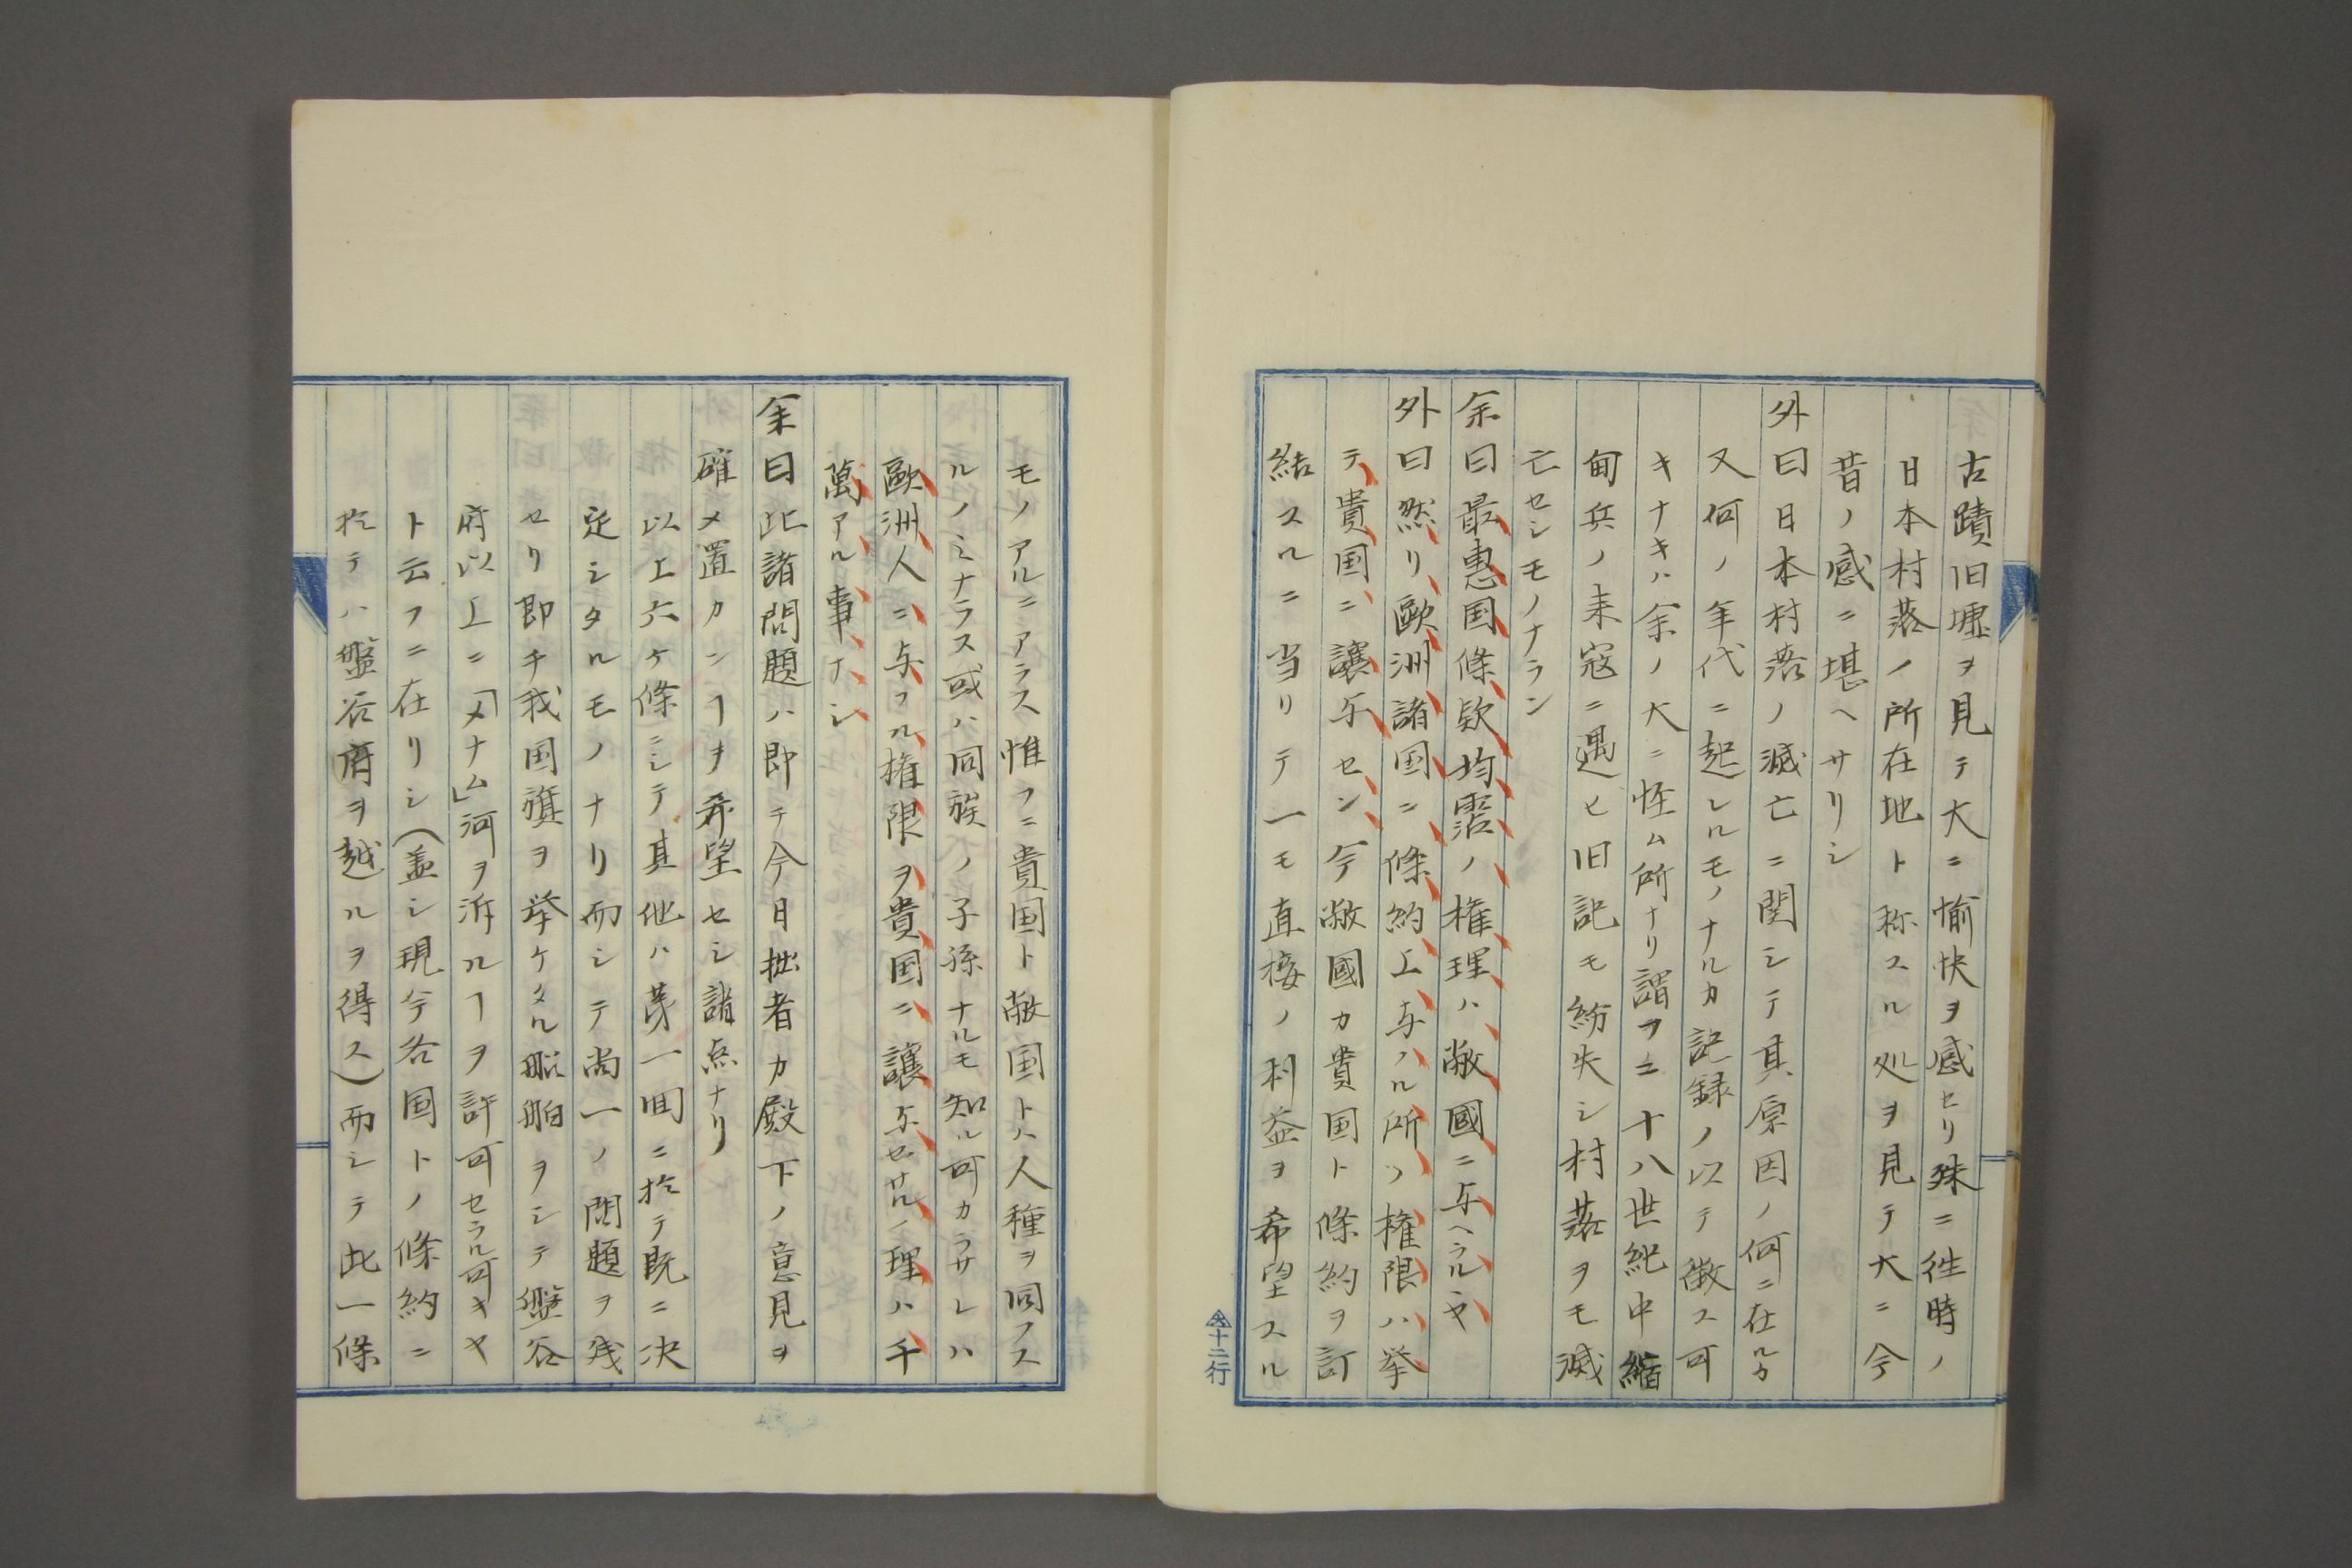 古蹟旧墟ヲ見テ大ニ愉快ヲ感セリ殊ニ往時ノ
日本村落ノ所在地ト称スル処ヲ見テ大ニ今
昔ノ感ニ堪ヘサリシ
外曰日本村落ノ滅亡ニ関シテ其原因ノ何ニ在ルカ
又何ノ年代ニ起レルモノナルカ記録ノ以テ徴ス可
キナキハ余ノ大ニ怪ム所ナリ謂フニ十八世紀中緬
甸兵ノ来寇ニ遇ヒ旧記モ紛失シ村落ヲモ滅
亡セシモノナラン
余曰最惠国條欵均霑ノ権理ハ敝國ニ与ヘラルヽヤ
外曰然リ歐洲諸国ニ條約上与ハル所ノ権限ハ挙
テ貴国ニ讓与セン今敝國カ貴国ト條約ヲ訂
結スルニ当リテ一モ直接ノ利益ヲ希望スル
十二行
モノアルニアラス惟フニ貴国ト敝国トハ人種ヲ同フス
ルノミナラス或ハ同族ノ子孫ナルモ知ル可カラサレハ
歐洲人ニ与フル権限ヲ貴国ニ讓与セサルノ理ハ千
萬アル事ナシ
余曰此諸問題ハ即チ今日拙者カ殿下ノ意見ヲ
確メ置カンヿヲ希望セシ諸点ナリ
以上六ケ條ニシテ其他ハ第一回ニ於テ既ニ決
定シタルモノナリ而シテ尚一ノ問題ヲ残
セリ即チ我国旗ヲ挙ケタル船舶ヲシテ盤谷
府以上ニ「メナム」河ヲ泝ルヿヲ許可セラル可キヤ
ト云フニ在リシ(盖シ現今各国トノ條約ニ
於テハ盤谷府ヲ越ルヲ得ス)而シテ此一條